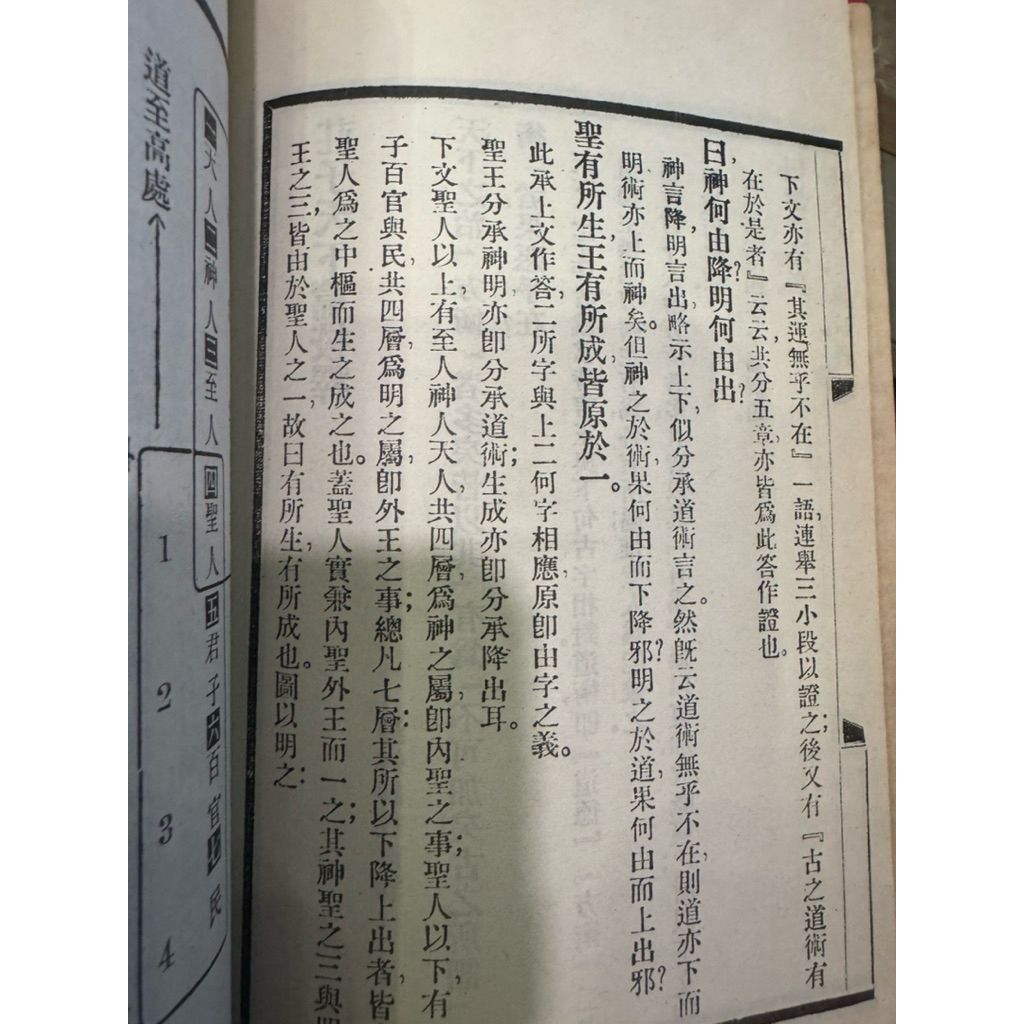 下文亦有『其運無乎不在』一語，連舉三小段以證之；後又有『古之道術有
在於是者』云云，共分五章，亦皆爲此答作證也。
曰，神何由降？明何由出？
神言降，明言出，略示上下，似分承道術言之。然既云道術無乎不在，則道亦下而
明，術亦上而神矣。但神之於術，果何由而下降邪？明之於道，果何由而上出邪？
聖有所生，王有所成，皆原於一。
此承上文作答，二所字與上二何字相應，原卽由字之義。
聖王分承神明，亦卽分承道術；生成亦卽分承降出耳。
下文聖人以上，有至人神人天人，共四層，爲神之屬，卽內聖之事；聖人以下，有
子百官與民，共四層，爲明之屬，卽外王之事；總凡七層：其所以下降上出者，皆
聖人爲之中樞而生之成之也。蓋聖人實兼內聖外王而一之；其神聖之三與
王之三，皆由於聖人之一，故曰有所生，有所成也。圖以明之：
道至高處
一天人二神人三至人四聖人五君子六百官七民
1
2
3
4